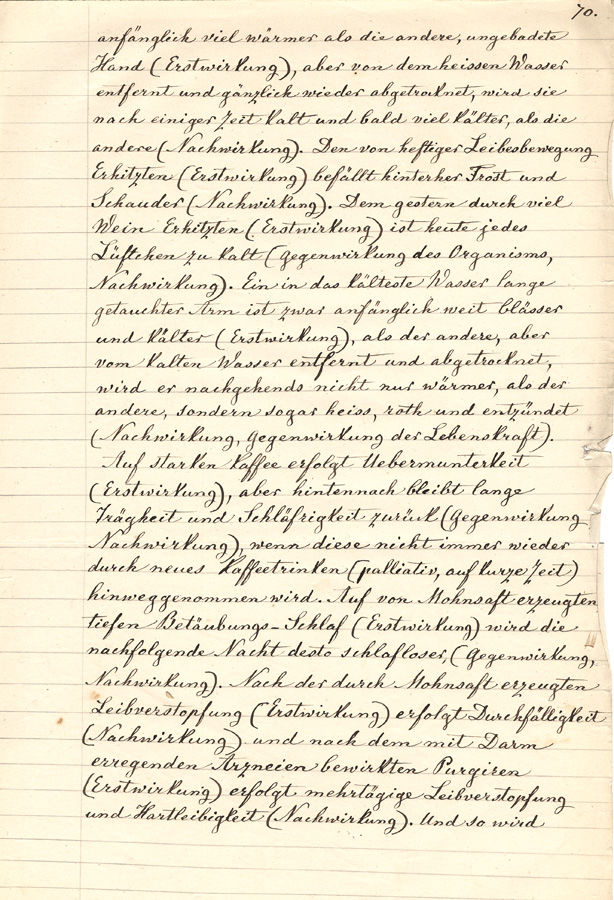 70.
anfänglich viel wärmer als die andere, ungebadete
Hand (Erstwirkung), aber von dem heissen Wasser
entfernt und gänzlich wieder abgetrocknet, wird sie
nach einiger Zeit kalt und bald viel kälter, als die
andere (Nachwirkung). Den von heftiger Leibesbewegung
Erhitzten (Erstwirkung) befällt hinterher Frost und
Schauder (Nachwirkung). Dem gestern durch viel
Wein Erhitzten (Erstwirkung) ist heute jedes
Lüftchen zu kalt (Gegenwirkung des Organisms,
Nachwirkung). Ein in das kälteste Wasser lange
getauchter Arm ist zwar anfänglich weit blässer
und kälter (Erstwirkung), als der andere, aber
vom kalten Wasser entfernt und abgetrocknet,
wird er nachgehends nicht nur wärmer, als der
andere, sondern sogar heiss, roth und entzündet
(Nachwirkung, Gegenwirkung der Lebenskraft).
Auf starken Kaffee erfolgt Uebermunterkeit
(Erstwirkung), aber hintennach bleibt lange
Trägkeit und Schläfrigkeit zurück (Gegenwirkung
Nachwirkung), wenn diese nicht immer wieder
durch neues Kaffeetrinken (palliativ, auf kurze Zeit)
hinweggenommen wird. Auf von Mohnsaft erzeugten
tiefen Betäubungs-Schlaf (Erstwirkung) wird die
nachfolgende Nacht desto schlafloser, (Gegenwirkung,
Nachwirkung). Nach der durch Mohnsaft erzeugten
Leibverstopfung (Erstwirkung) erfolgt Durchfälligkeit
(Nachwirkung) und nach dem mit Darm
erregenden Arzneien bewirkten Purgiren
(Erstwirkung) erfolgt mehrtägige Leibverstopfung
und Hartleibigkeit (Nachwirkung). Und so wird